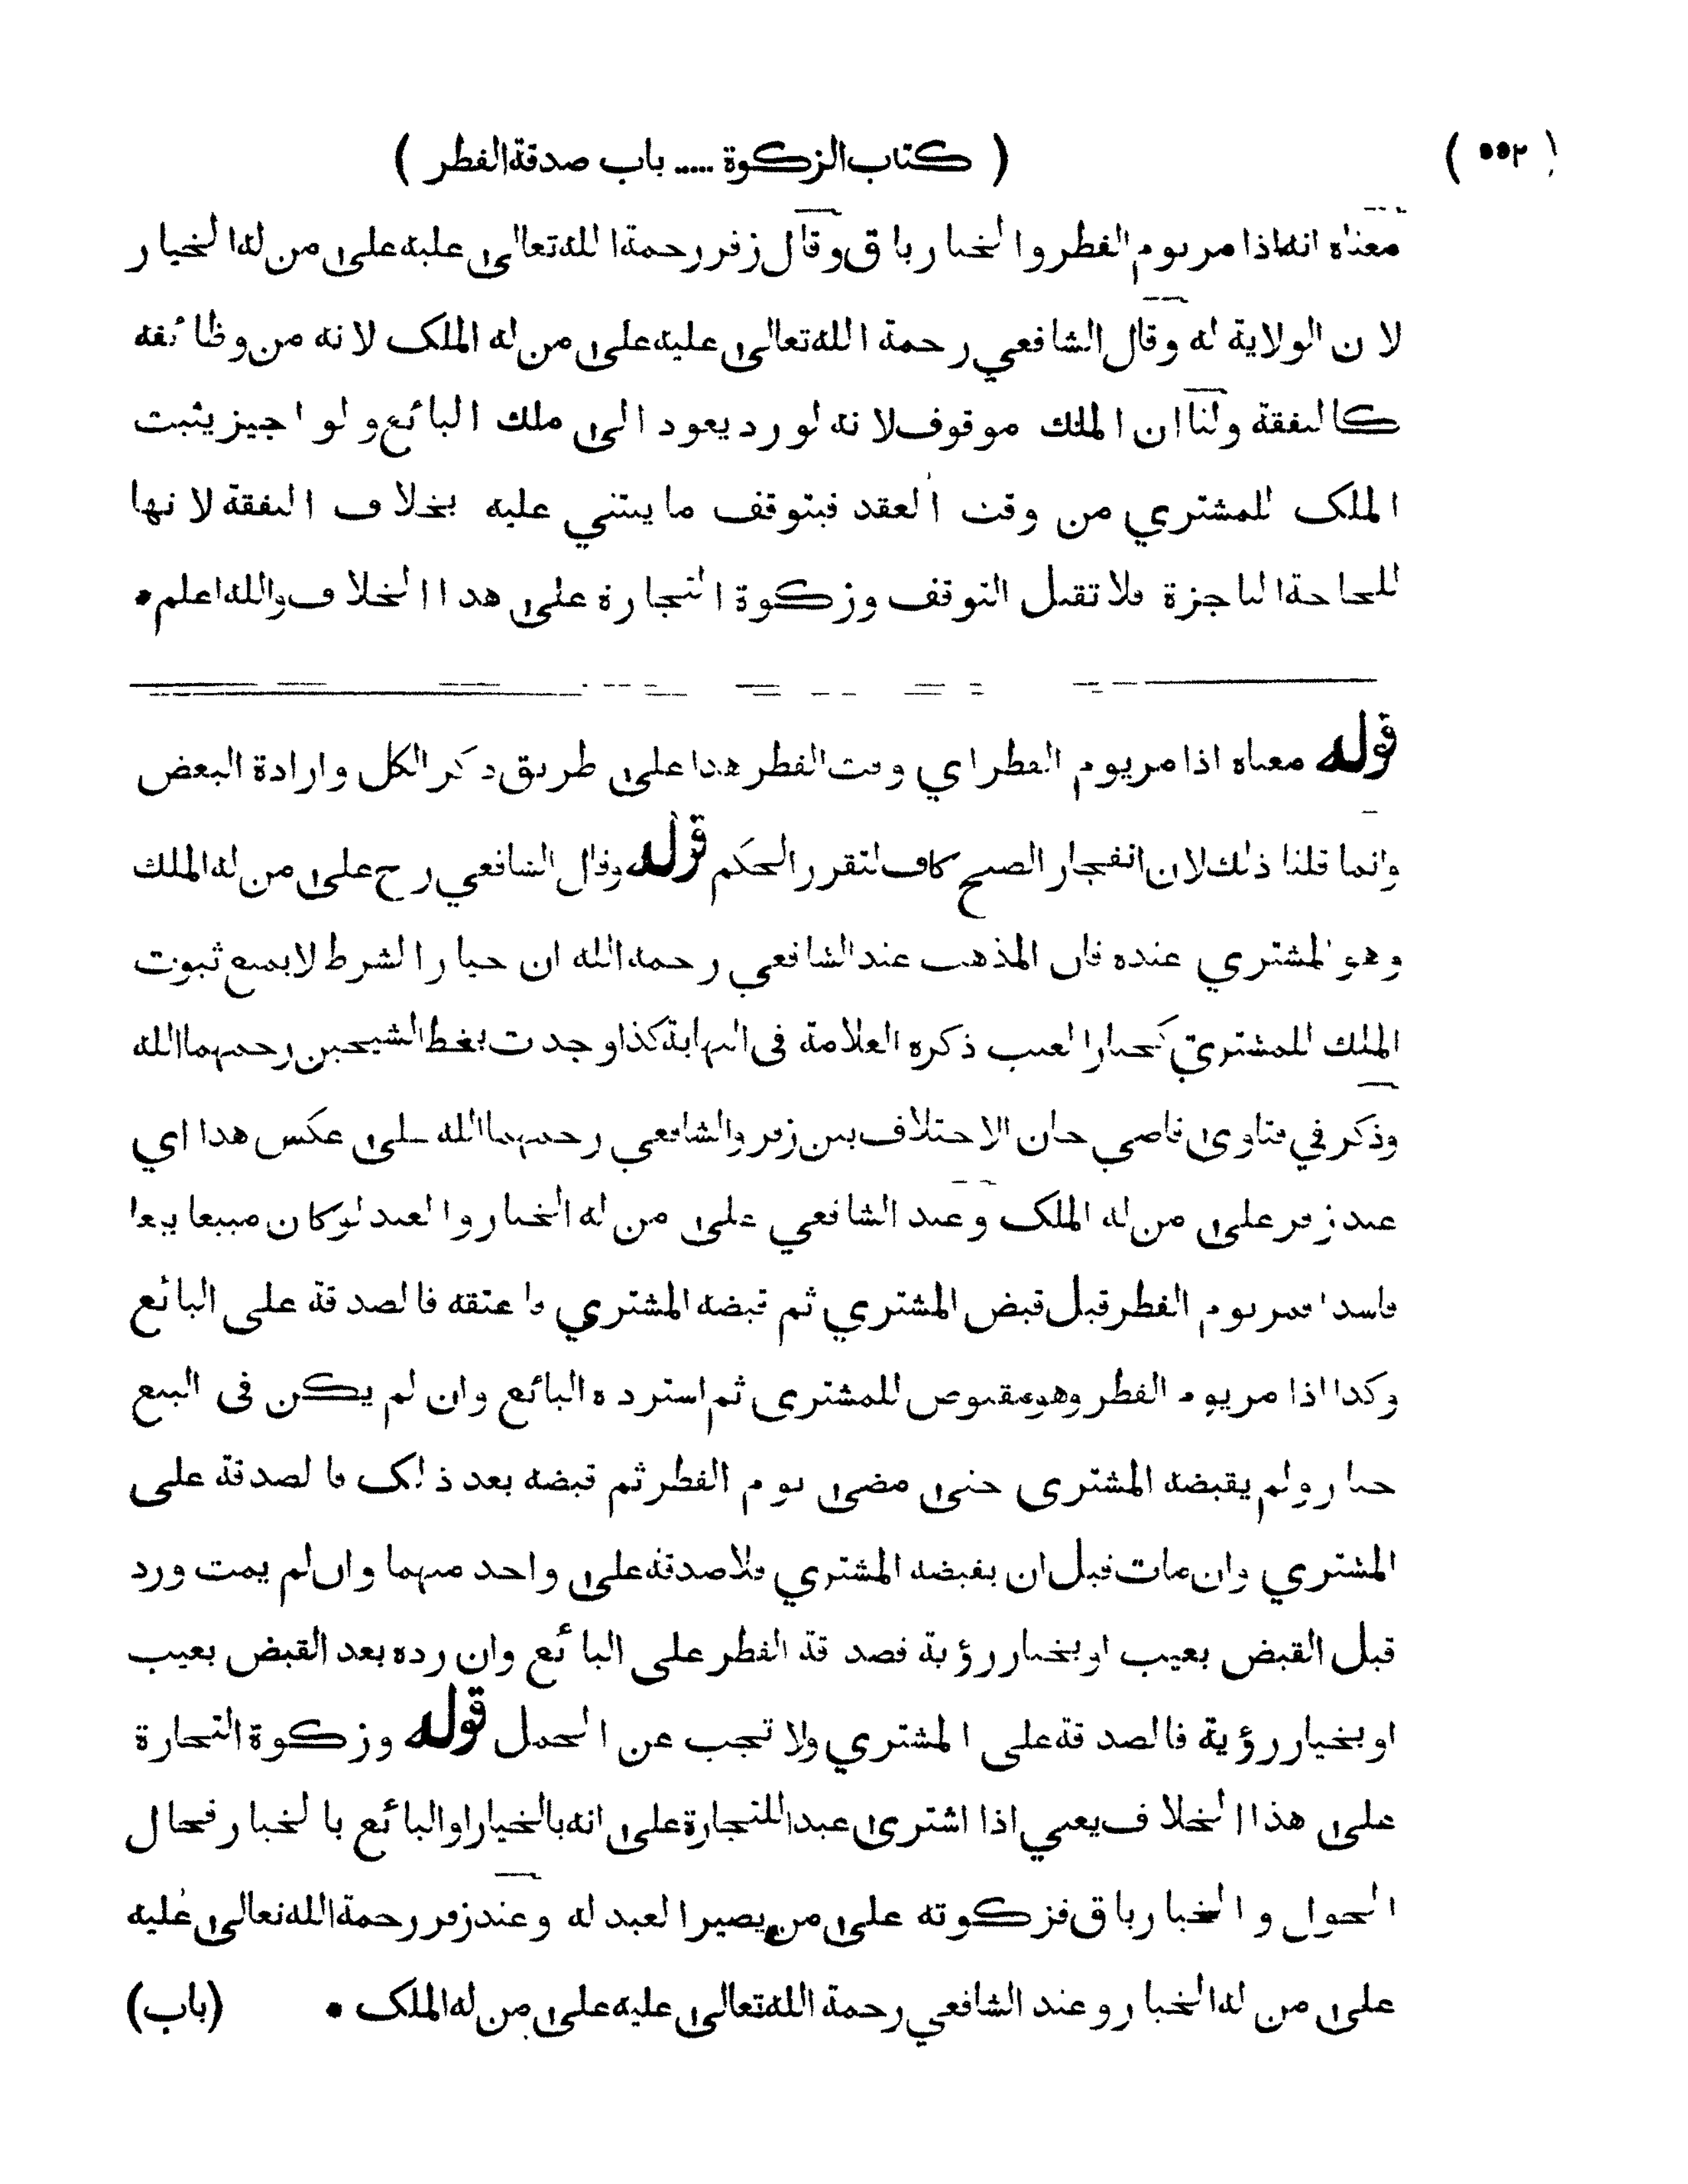 ( ٥٥٢ ) ( كتاب الزكوة ..... باب صدقة الفطر )
معناه انه اذا مر يوم الفطر والخيار باق وقال زفر رحمة الله تعالى عليه على من له الخيار
لان الولاية له وقال الشافعي رحمة الله تعالى عليه على من له الملك لانه من وظائفه
كالنفقة ولنا ان الملك موقوف لانه لو رد يعود الى ملك البائع ولو اجيز يثبت
الملك للمشتري من وقت العقد فيتوقف ما يبتني عليه بخلاف النفقة لانها
للحاجة الناجزة فلا تقبل التوقف وزكوة التجارة على هذا الخلاف والله اعلم •
قوله معناه اذا مر يوم الفطر اي وقت الفطر هذا على طريق ذكر الكل وارادة البعض
وانما قلنا ذلك لان انفجار الصبح كاف لتقرر الحكم قوله وقال الشافعي رح على من له الملك
وهو المشتري عنده فان المذهب عند الشافعي رحمه الله ان خيار الشرط لا يمنع ثبوت
الملك للمشتري كخيار العيب ذكره العلامة فى النهاية كذا وجدت بخط الشيخين رحمهما الله
وذكر في فتاوى قاضي خان الاختلاف بين زفر والشافعي رحمهما الله على عكس هذا اي
عند زفر على من له الملك وعند الشافعي على من له الخيار والعبد لو كان مبيعا بيعا
فاسدا فمر يوم الفطر قبل قبض المشتري ثم قبضه المشتري فاعتقه فالصدقة على البائع
وكذا اذا مر يوم الفطر وهو مقبوض للمشترى ثم استرده البائع وان لم يكن فى البيع
خيار ولم يقبضه المشترى حتى مضى يوم الفطر ثم قبضه بعد ذلك فالصدقة على
المشتري وان مات قبل ان يقبضه المشتري فلا صدقة على واحد منهما وان لم يمت ورد
قبل القبض بعيب او بخيار رؤية فصدقة الفطر على البائع وان رده بعد القبض بعيب
او بخيار رؤية فالصدقة على المشتري ولا تجب عن الحمل قوله وزكوة التجارة
على هذا الخلاف يعني اذا اشترى عبدا للتجارة على انه بالخيار او البائع بالخيار فحال
الحول والخيار باق فزكوته على من يصير العبد له وعند زفر رحمة الله تعالى عليه
على من له الخيار وعند الشافعي رحمة الله تعالى عليه على من له الملك • (باب)